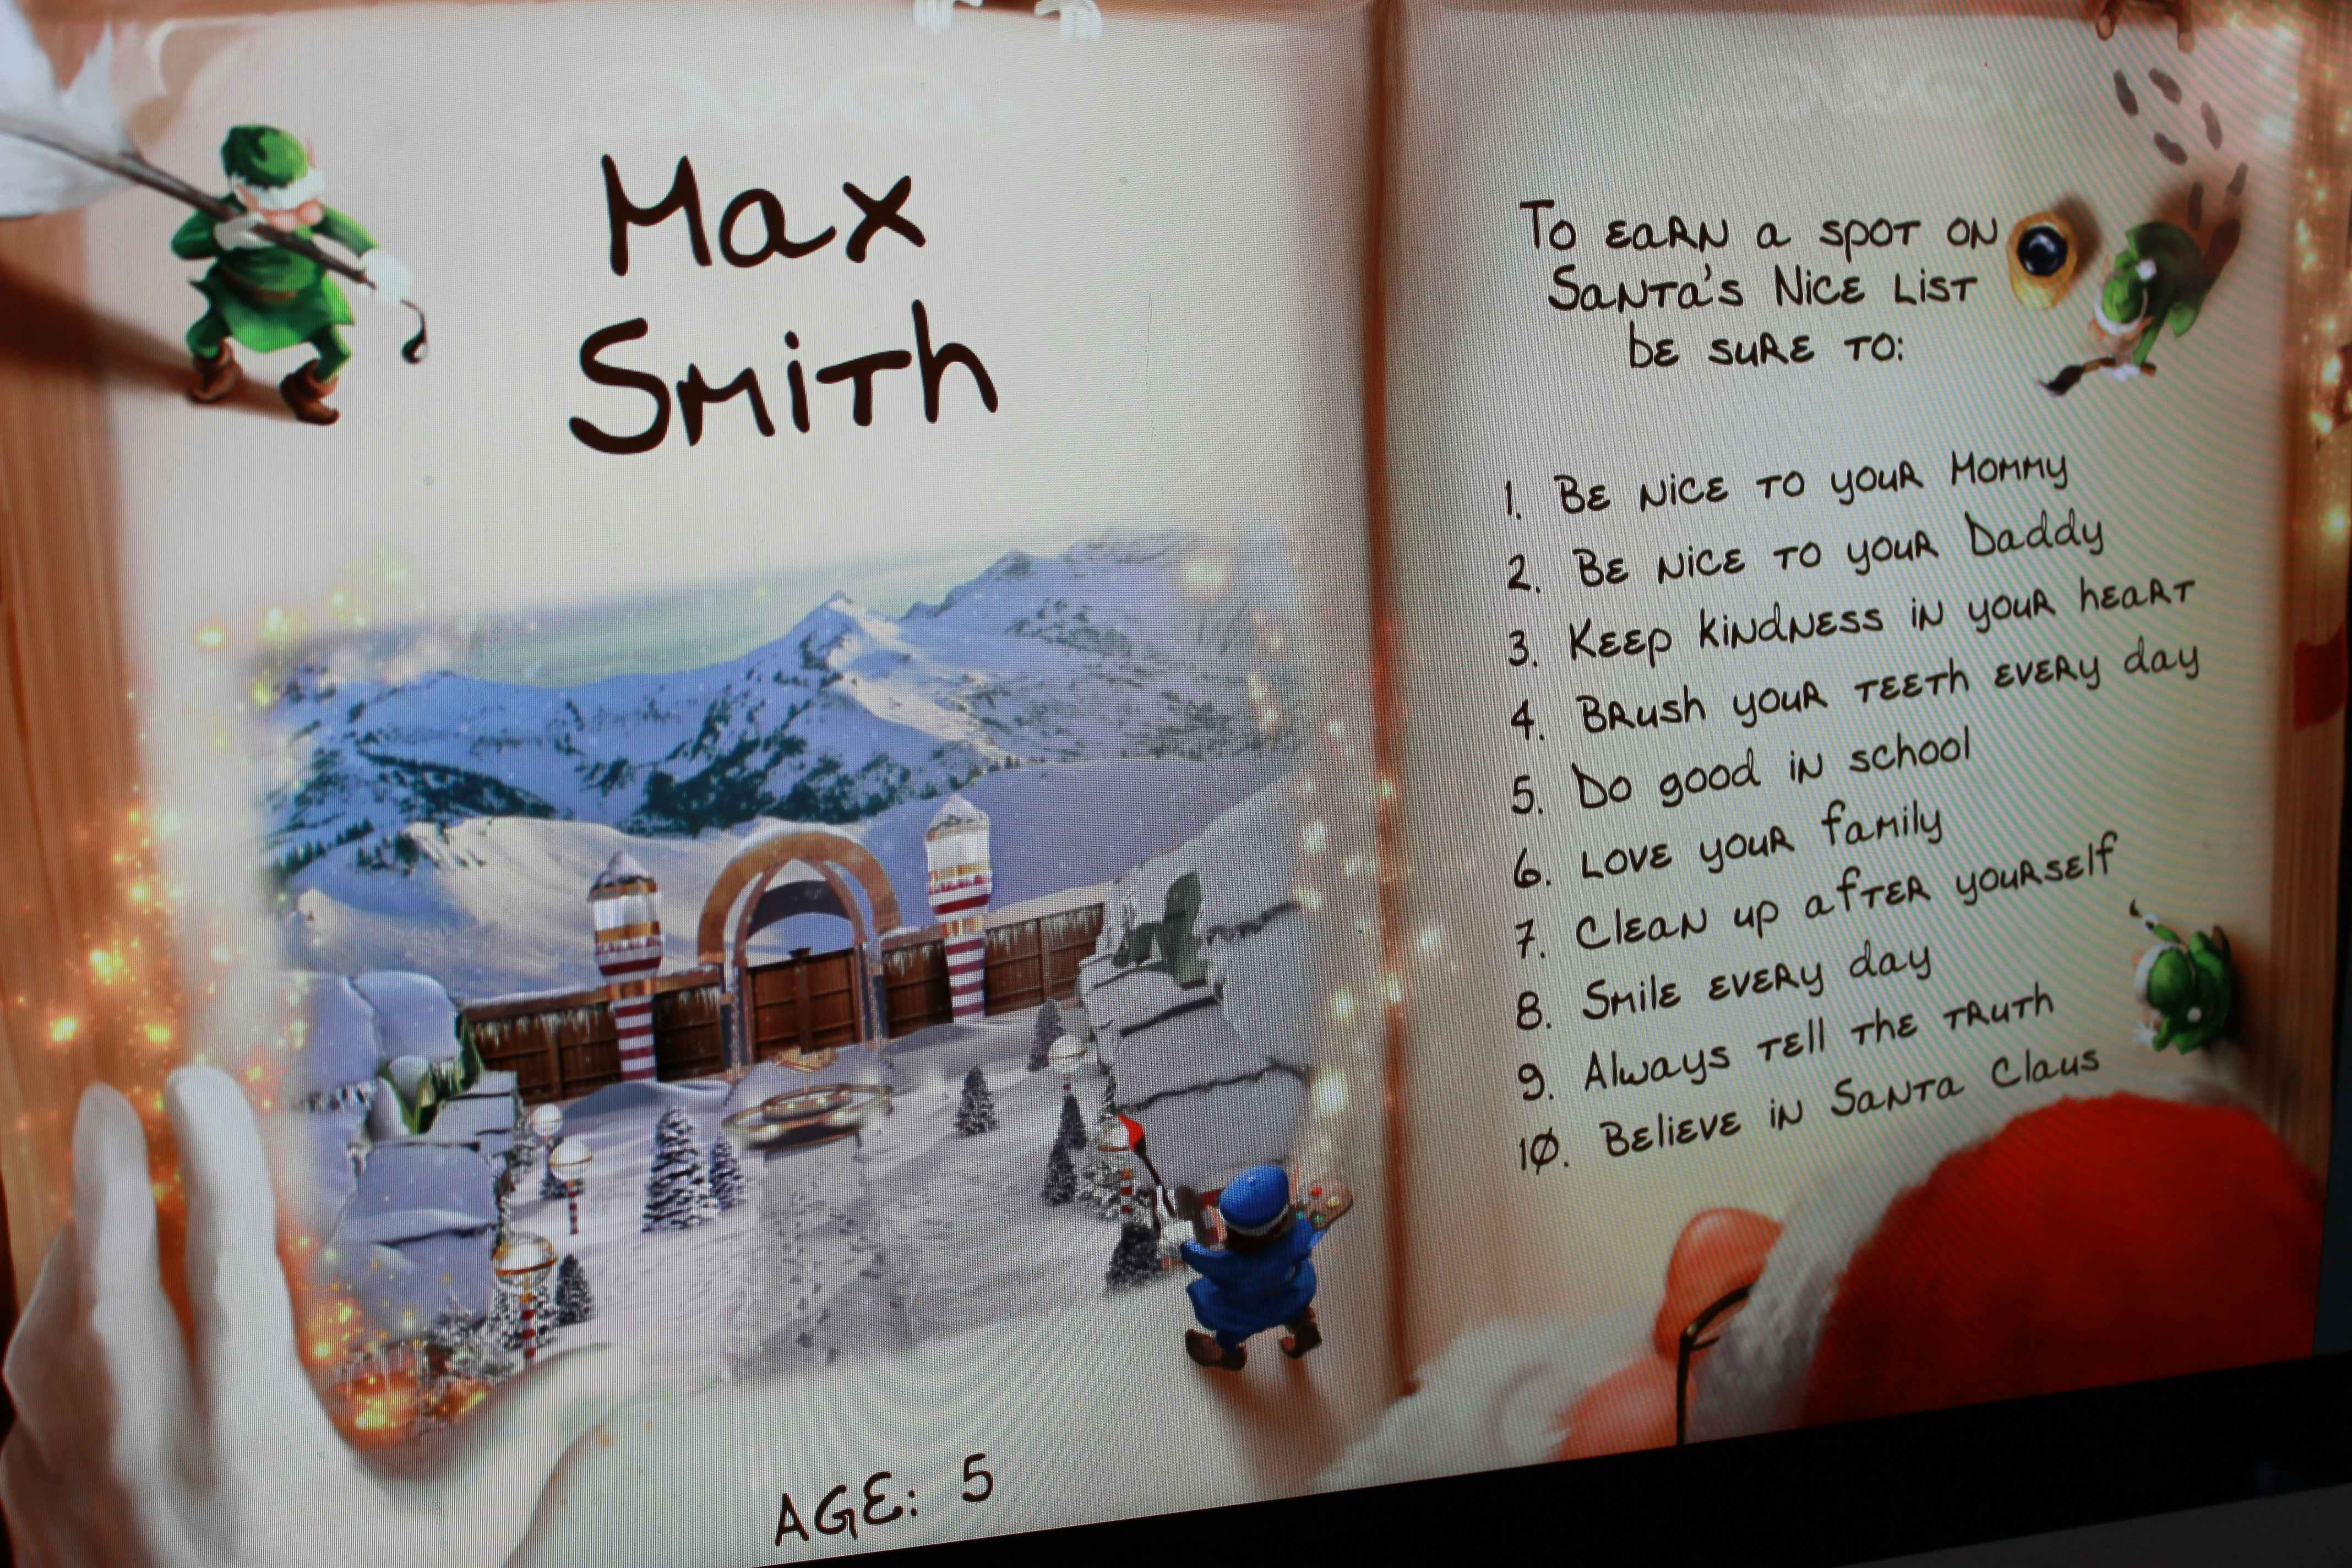 Max
Smith
AGE: 5
To earn a spot on
Santa's Nice List
be sure to:
1. Be nice to your Mommy
2. Be nice to your Daddy
3. Keep kindness in your heart
4. Brush your teeth every day
5. Do good in school
6. Love your family
7. Clean up after yourself
8. Smile every day
9. Always tell the truth
10. Believe in Santa Claus